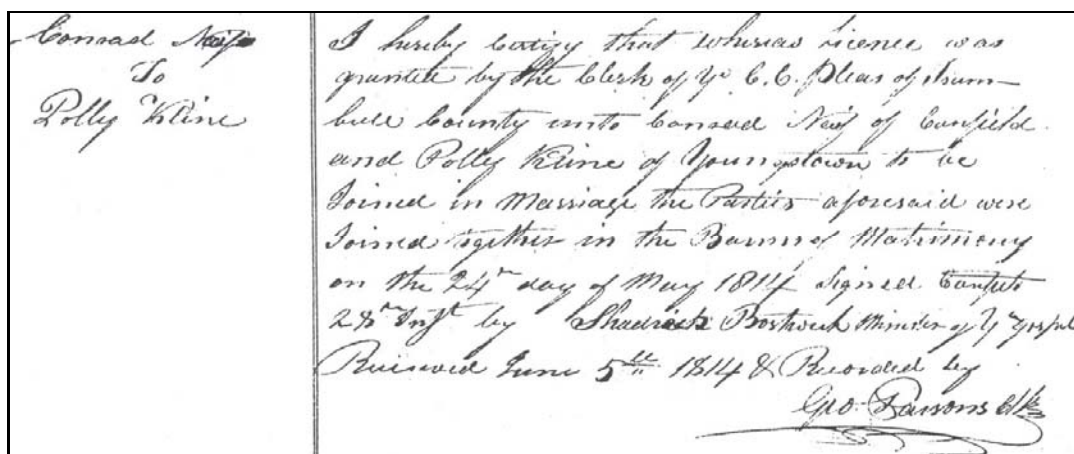 Conrad Neif
To
Polly Kline
I hereby Certify that whereas Licence was
granted by the Clerk of Ye C. C. Pleas of Trum-
bull County unto Conrad Neif of Canfield
and Polly Kline of Youngstown to be
Joined in Marriage the Parties aforesaid were
Joined together in the Banns of Matrimony
on the 24th day of May 1814 Signed Canfield
28th Inst by Shadrack Bostwick Minister of Ye Gospel
Received June 5th 1814 & Recorded by
Geo Parsons Clk